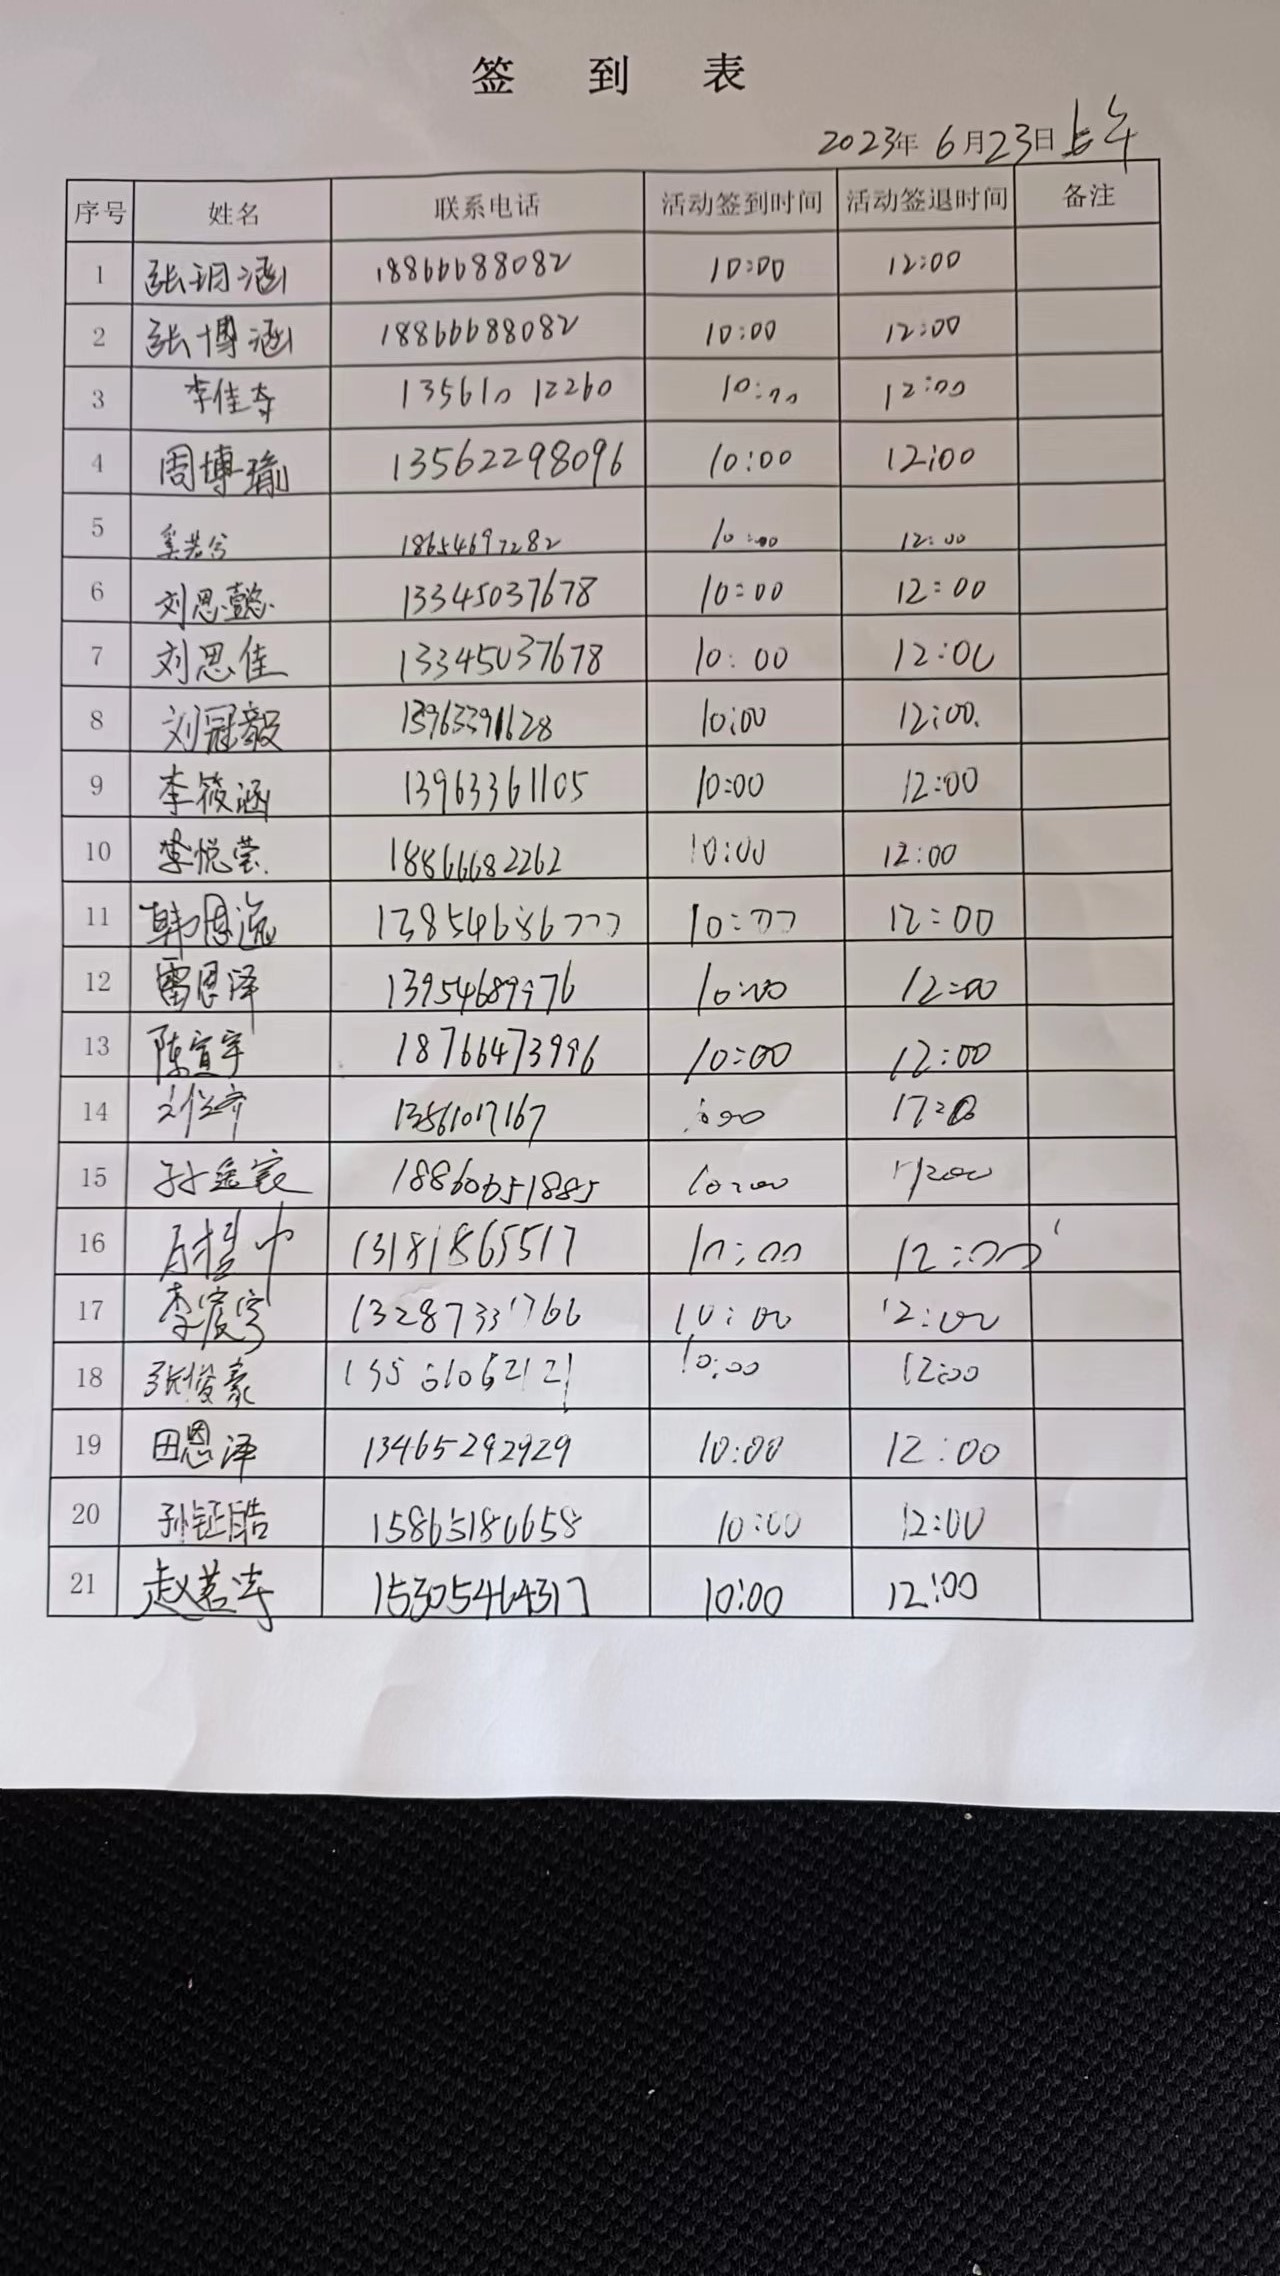 签 到 表
2023年 6月23日上午
序号 姓名 联系电话 活动签到时间 活动签退时间 备注
1 张玥涵 18866688082 10:00 12:00
2 张博涵 18866688082 10:00 12:00
3 李佳 13561012260 10:00 12:00
4 周博瑜 13562298096 10:00 12:00
5 奚若兮 18654697282 10:00 12:00
6 刘思懿 13345037678 10:00 12:00
7 刘思佳 13345037678 10:00 12:00
8 刘冠毅 13963391628 10:00 12:00
9 李筱涵 13963361105 10:00 12:00
10 李悦莹 18866682262 10:00 12:00
11 韩恩逸 13854686777 10:00 12:00
12 雷恩泽 13954689976 10:00 12:00
13 陈宣宇 18766473996 10:00 12:00
14
15 孙 10:00 12:00
16 13181865517 10:00 12:00
17 李宸宇 10:00 12:00
18 张俊豪 10:00 12:00
19 田恩泽 13465292929 10:00 12:00
20 孙钲皓 15865180658 10:00 12:00
21 赵若涛 15305464317 10:00 12:00